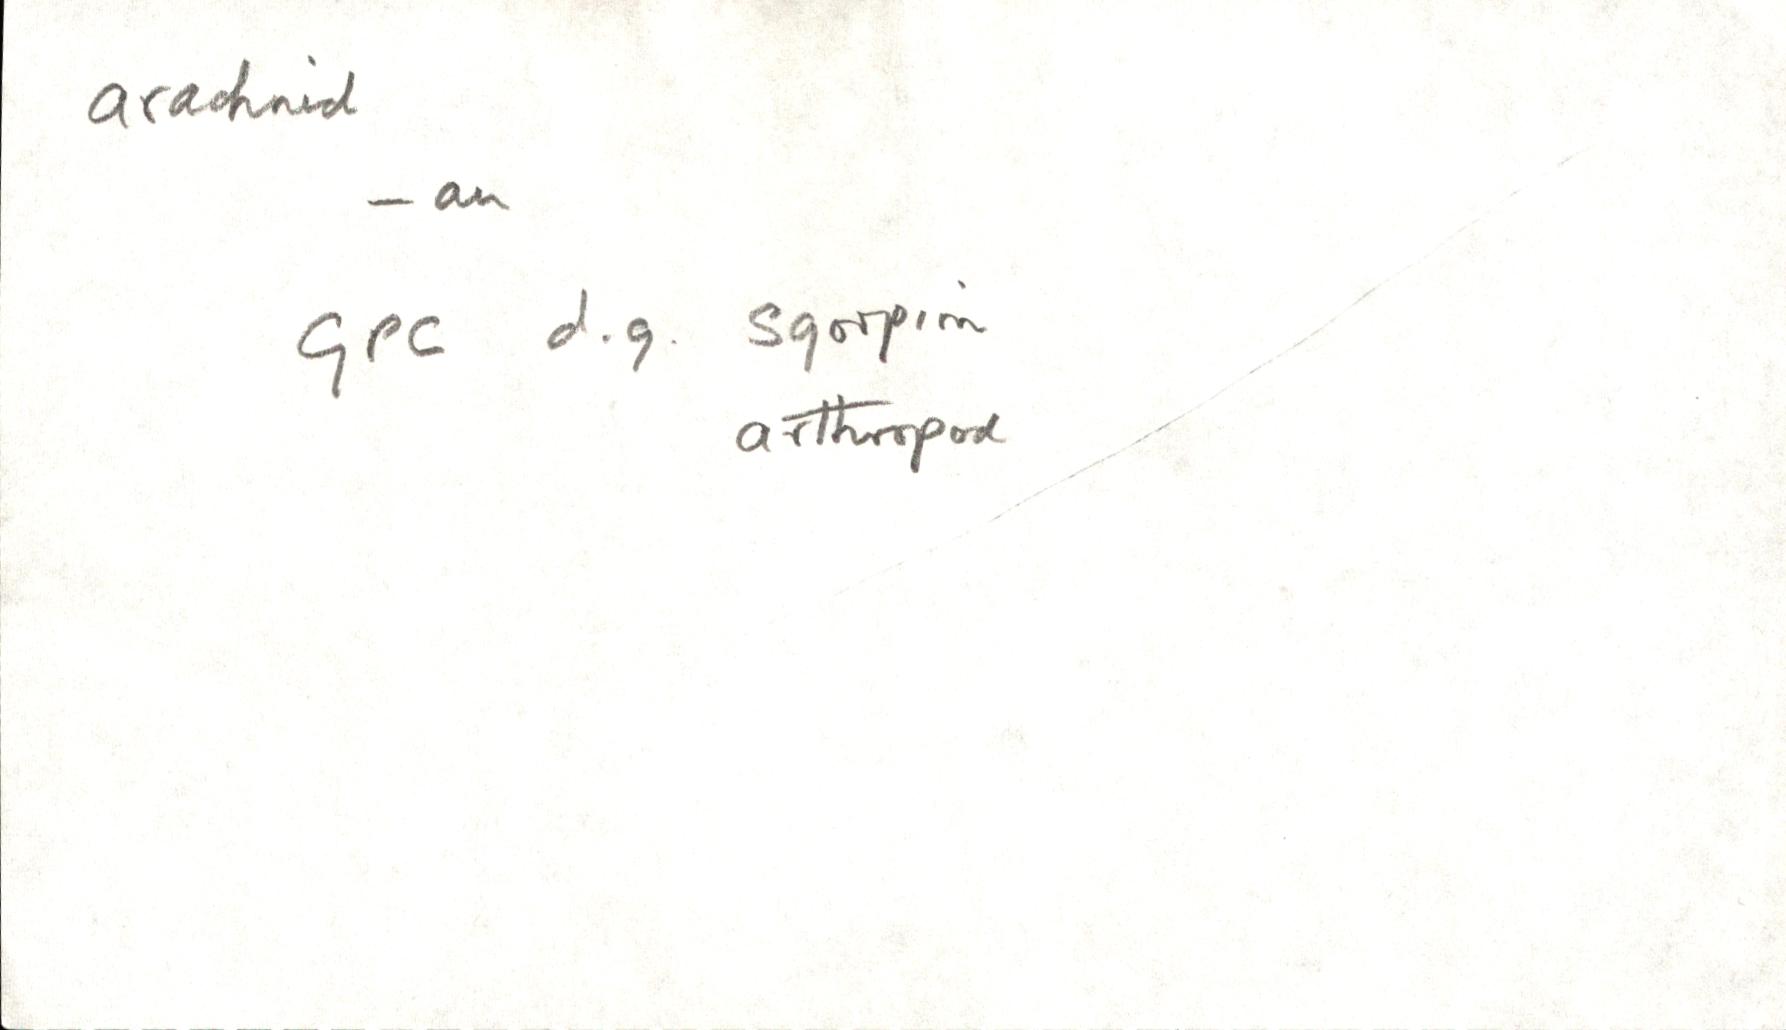 arachnid
– au
GPC d.g. sgorpion
arthropod